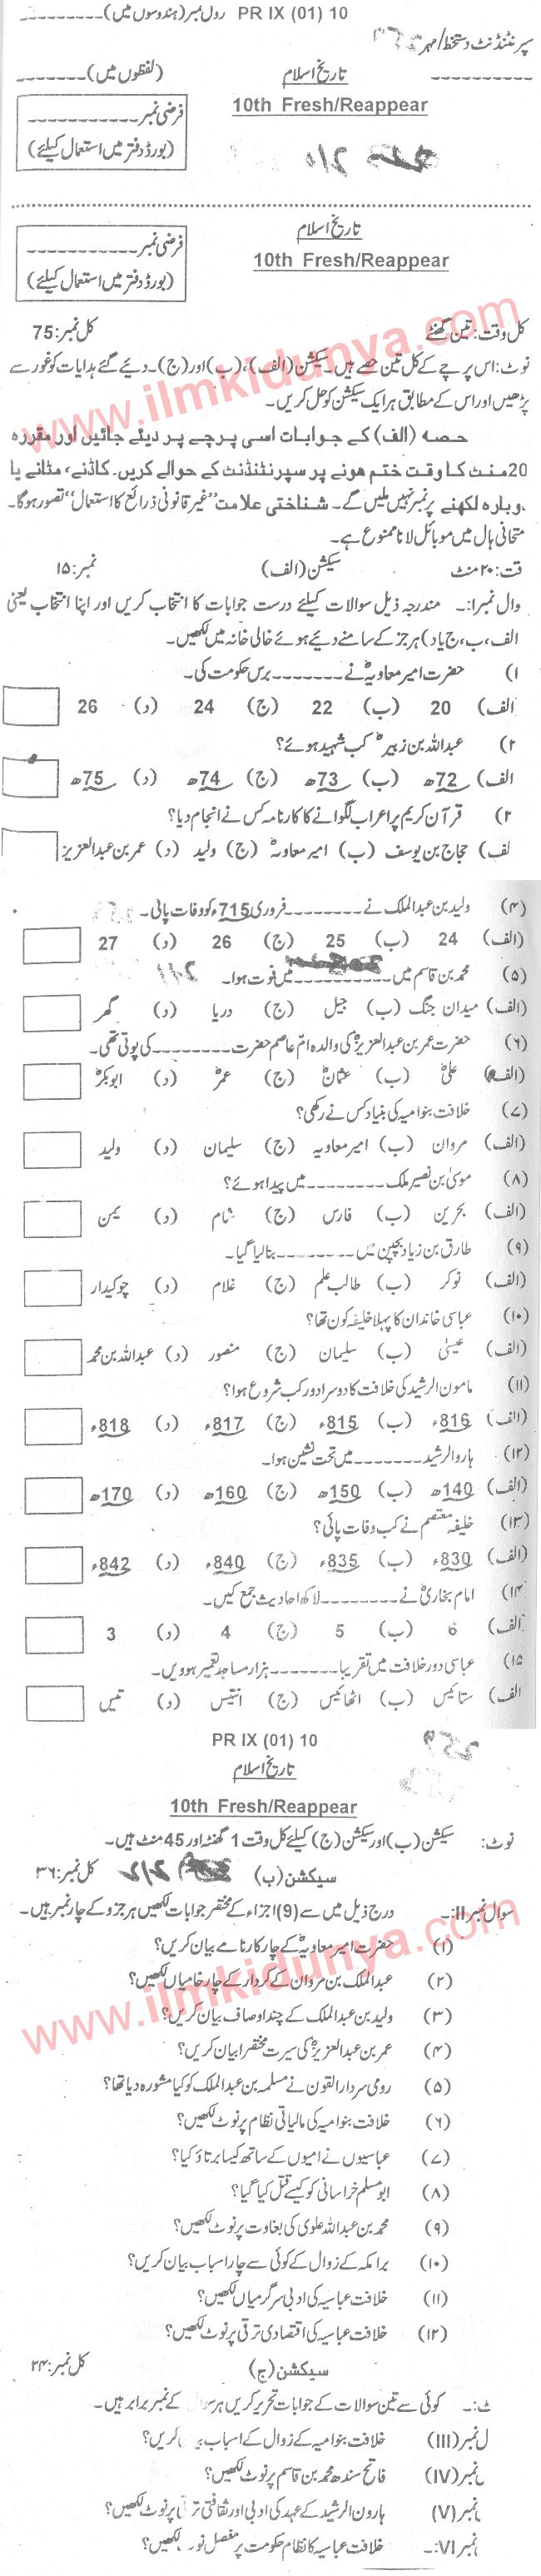 PR IX (01) 10 رول نمبر (ہندوسوں میں)
سپرنٹنڈنٹ دستخط/مہر
تاریخ اسلام (لفظوں میں)
10th Fresh/Reappear
فرضی نمبر
(بورڈ دفتر میں استعمال کیلئے)
تاریخ اسلام
10th Fresh/Reappear
فرضی نمبر
(بورڈ دفتر میں استعمال کیلئے)
کل وقت: تین گھنٹے کل نمبر: 75
نوٹ: اس پرچے کے کل تین حصے ہیں۔ سیکشن (الف)، (ب) اور (ج)۔ دیئے گئے ہدایات کو غور سے
پڑھیں اور اس کے مطابق ہر ایک سیکشن کو حل کریں۔
حصہ (الف) کے جوابات اسی پرچے پر دیئے جائیں اور مقررہ
20 منٹ کا وقت ختم ہونے پر سپرنٹنڈنٹ کے حوالے کریں۔ کاٹنے، مٹانے یا
وبارہ لکھنے پر نمبر نہیں ملیں گے۔ شناختی علامت "غیر قانونی ذرائع کا استعمال" تصور ہوگا۔
متحانی ہال میں موبائل لانا ممنوع ہے۔
قت: ۲۰ منٹ سیکشن (الف) نمبر: ۱۵
وال نمبرا:۔ مندرجہ ذیل سوالات کیلئے درست جوابات کا انتخاب کریں اور اپنا انتخاب یعنی
الف، ب، ج یا د) ہر جز کے سامنے دیئے ہوئے خالی خانہ میں لکھیں۔
۱) حضرت امیر معاویہؓ نے ________ برس حکومت کی۔
الف) 20 (ب) 22 (ج) 24 (د) 26
۲) عبداللہ بن زبیرؓ کب شہید ہوئے؟
الف) 72ھ (ب) 73ھ (ج) 74ھ (د) 75ھ
۳) قرآن کریم پر اعراب لگوانے کا کارنامہ کس نے انجام دیا؟
لف) حجاج بن یوسف (ب) امیر معاویہؓ (ج) ولید (د) عمر بن عبدالعزیز
(۴) ولید بن عبدالملک نے ________ فروری 715ء کو وفات پائی۔
(الف) 24 (ب) 25 (ج) 26 (د) 27
(۵) محمد بن قاسم میں ________ میں فوت ہوا۔
(الف) میدان جنگ (ب) جیل (ج) دریا (د) گھر
(۶) حضرت عمر بن عبدالعزیزؒ کی والدہ امّ عاصم حضرت ________ کی پوتی تھی۔
(الف) علیؓ (ب) عثمانؓ (ج) عمرؓ (د) ابوبکرؓ
(۷) خلافت بنوامیہ کی بنیاد کس نے رکھی؟
(الف) مروان (ب) امیر معاویہ (ج) سلیمان (د) ولید
(۸) موسیٰ بن نصیر ملک ________ میں پیدا ہوئے؟
(الف) بحرین (ب) فارس (ج) شام (د) یمن
(۹) طارق بن زیاد بچپن میں ________ بنالیا گیا۔
(الف) نوکر (ب) طالب علم (ج) غلام (د) چوکیدار
(۱۰) عباسی خاندان کا پہلا خلیفہ کون تھا؟
(الف) عیسیٰ (ب) سلیمان (ج) منصور (د) عبداللہ بن محمد
(۱۱) مامون الرشید کی خلافت کا دوسرا دور کب شروع ہوا؟
(الف) 816ء (ب) 815ء (ج) 817ء (د) 818ء
(۱۲) ہارو الرشید ________ میں تخت نشین ہوا۔
(الف) 140ھ (ب) 150ھ (ج) 160ھ (د) 170ھ
(۱۳) خلیفہ معتصم نے کب وفات پائی؟
(الف) 830ء (ب) 835ء (ج) 840ء (د) 842ء
(۱۴ امام بخاریؒ نے ________ لاکھ احادیث جمع کیں۔
الف) 6 (ب) 5 (ج) 4 (د) 3
(۱۵ عباسی دور خلافت میں تقریبا ________ ہزار مساجد تعمیر ہوویں۔
الف) ستائیس (ب) اٹھائیس (ج) انتیس (د) تیس
PR IX (01) 10
تاریخ اسلام
10th Fresh/Reappear
نوٹ: سیکشن (ب) اور سیکشن (ج) کیلئے کل وقت 1 گھنٹہ اور 45 منٹ ہیں۔
سیکشن (ب) کل نمبر: ۳۶
سوال نمبر II:۔ درج ذیل میں سے (9) اجزاء کے مختصر جوابات لکھیں ہر جزو کے چار نمبر ہیں۔
(۱) حضرت امیر معاویہؓ کے چار کارنامے بیان کریں؟
(۲) عبدالملک بن مروان کے کردار کے چار خامیاں لکھیں؟
(۳) ولید بن عبدالملک کے چند اوصاف بیان کریں؟
(۴) عمر بن عبدالعزیزؒ کی سیرت مختصرا بیان کریں؟
(۵) رومی سردار القون نے مسلمہ بن عبدالملک کو کیا مشورہ دیا تھا؟
(۶) خلافت بنوامیہ کی مالیاتی نظام پر نوٹ لکھیں؟
(۷) عباسیوں نے امیوں کے ساتھ کیسا برتاؤ کیا؟
(۸) ابو مسلم خراسانی کو کیسے قتل کیا گیا؟
(۹) محمد بن عبداللہ علوی کی بغاوت پر نوٹ لکھیں؟
(۱۰) برامکہ کے زوال کے کوئی سے چار اسباب بیان کریں؟
(۱۱) خلافت عباسیہ کی ادبی سرگرمیاں لکھیں؟
(۱۲) خلافت عباسیہ کی اقتصادی ترقی پر نوٹ لکھیں؟
سیکشن (ج) کل نمبر: ۲۴
ٹ:۔ کوئی سے تین سوالات کے جوابات تحریر کریں ہر سوال کے نمبر برابر ہیں۔
ل نمبر (III) خلافت بنوامیہ کے زوال کے اسباب کریں؟
نمبر (IV) فاتح سندھ محمد بن قاسم پر نوٹ لکھیں؟
نمبر (V) ہارون الرشید کے عہد کی ادبی اور ثقافتی پر نوٹ لکھیں؟
نمبر VI:۔ خلافت عباسیہ کا نظام حکومت پر مفصل لکھیں؟
www.ilmkidunya.com
www.ilmkidunya.com